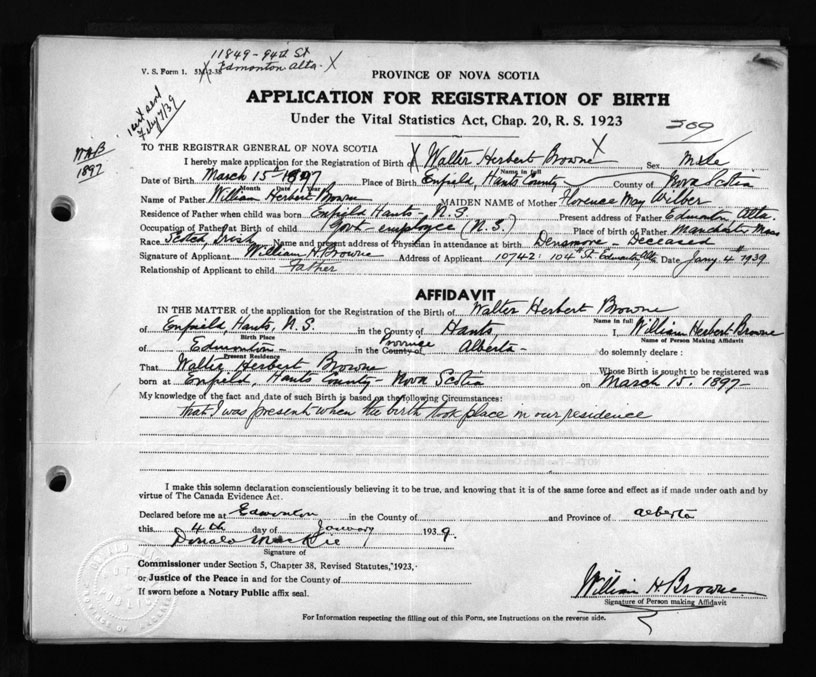 11849-94th St
V. S. Form 1. 5M-12-38 X Edmonton Alta. X
PROVINCE OF NOVA SCOTIA
APPLICATION FOR REGISTRATION OF BIRTH
Under the Vital Statistics Act, Chap. 20, R. S. 1923
cert send
Feb 7/39
509
WAB
1897
TO THE REGISTRAR GENERAL OF NOVA SCOTIA
I hereby make application for the Registration of Birth of X Walter Herbert Browne X Sex Male
Name in full
Date of Birth March 15th 1897 Place of Birth Enfield, Hants County County of Nova Scotia
Month Date Year
Name of Father William Herbert Browne MAIDEN NAME of Mother Florence May Wilber
Residence of Father when child was born Enfield Hants, N.S. Present address of Father Edmonton Alta.
Occupation of Father at Birth of child Govt- employee (N.S.) Place of birth of Father Manchester Mass
Race Scotch Irish Name and present address of Physician in attendance at birth Densmore - Deceased
Signature of Applicant William H. Browne Address of Applicant 10742: 104th St. Edmonton, Alta Date Jany 4th 1939
Relationship of Applicant to child Father
AFFIDAVIT
IN THE MATTER of the application for the Registration of the Birth of Walter Herbert Browne
Name in full
of Enfield, Hants, N.S. in the County of Hants I, William Herbert Browne
Birth Place Name of Person Making Affidavit
of Edmonton- in the County of Province Alberta- do solemnly declare:
Present Residence
That Walter Herbert Browne Whose Birth is sought to be registered was
born at Enfield, Hants County- Nova Scotia on March 15. 1897-
My knowledge of the fact and date of such Birth is based on the following Circumstances:
that I was present when the birth took place in our residence
I make this solemn declaration conscientiously believing it to be true, and knowing that it is of the same force and effect as if made under oath and by
virtue of The Canada Evidence Act.
Declared before me at Edmonton in the County of and Province of Alberta
this 4th day of January 1939.
Donald MacKie
Signature of
Commissioner under Section 5, Chapter 38, Revised Statutes, 1923,
or Justice of the Peace in and for the County of
If sworn before a Notary Public affix seal.
William H. Browne
Signature of Person making Affidavit
For Information respecting the filling out of this Form, see Instructions on the reverse side.